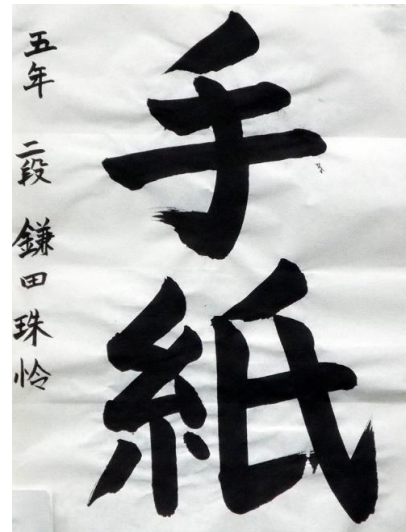 手紙
五年 二段 鎌田珠怜